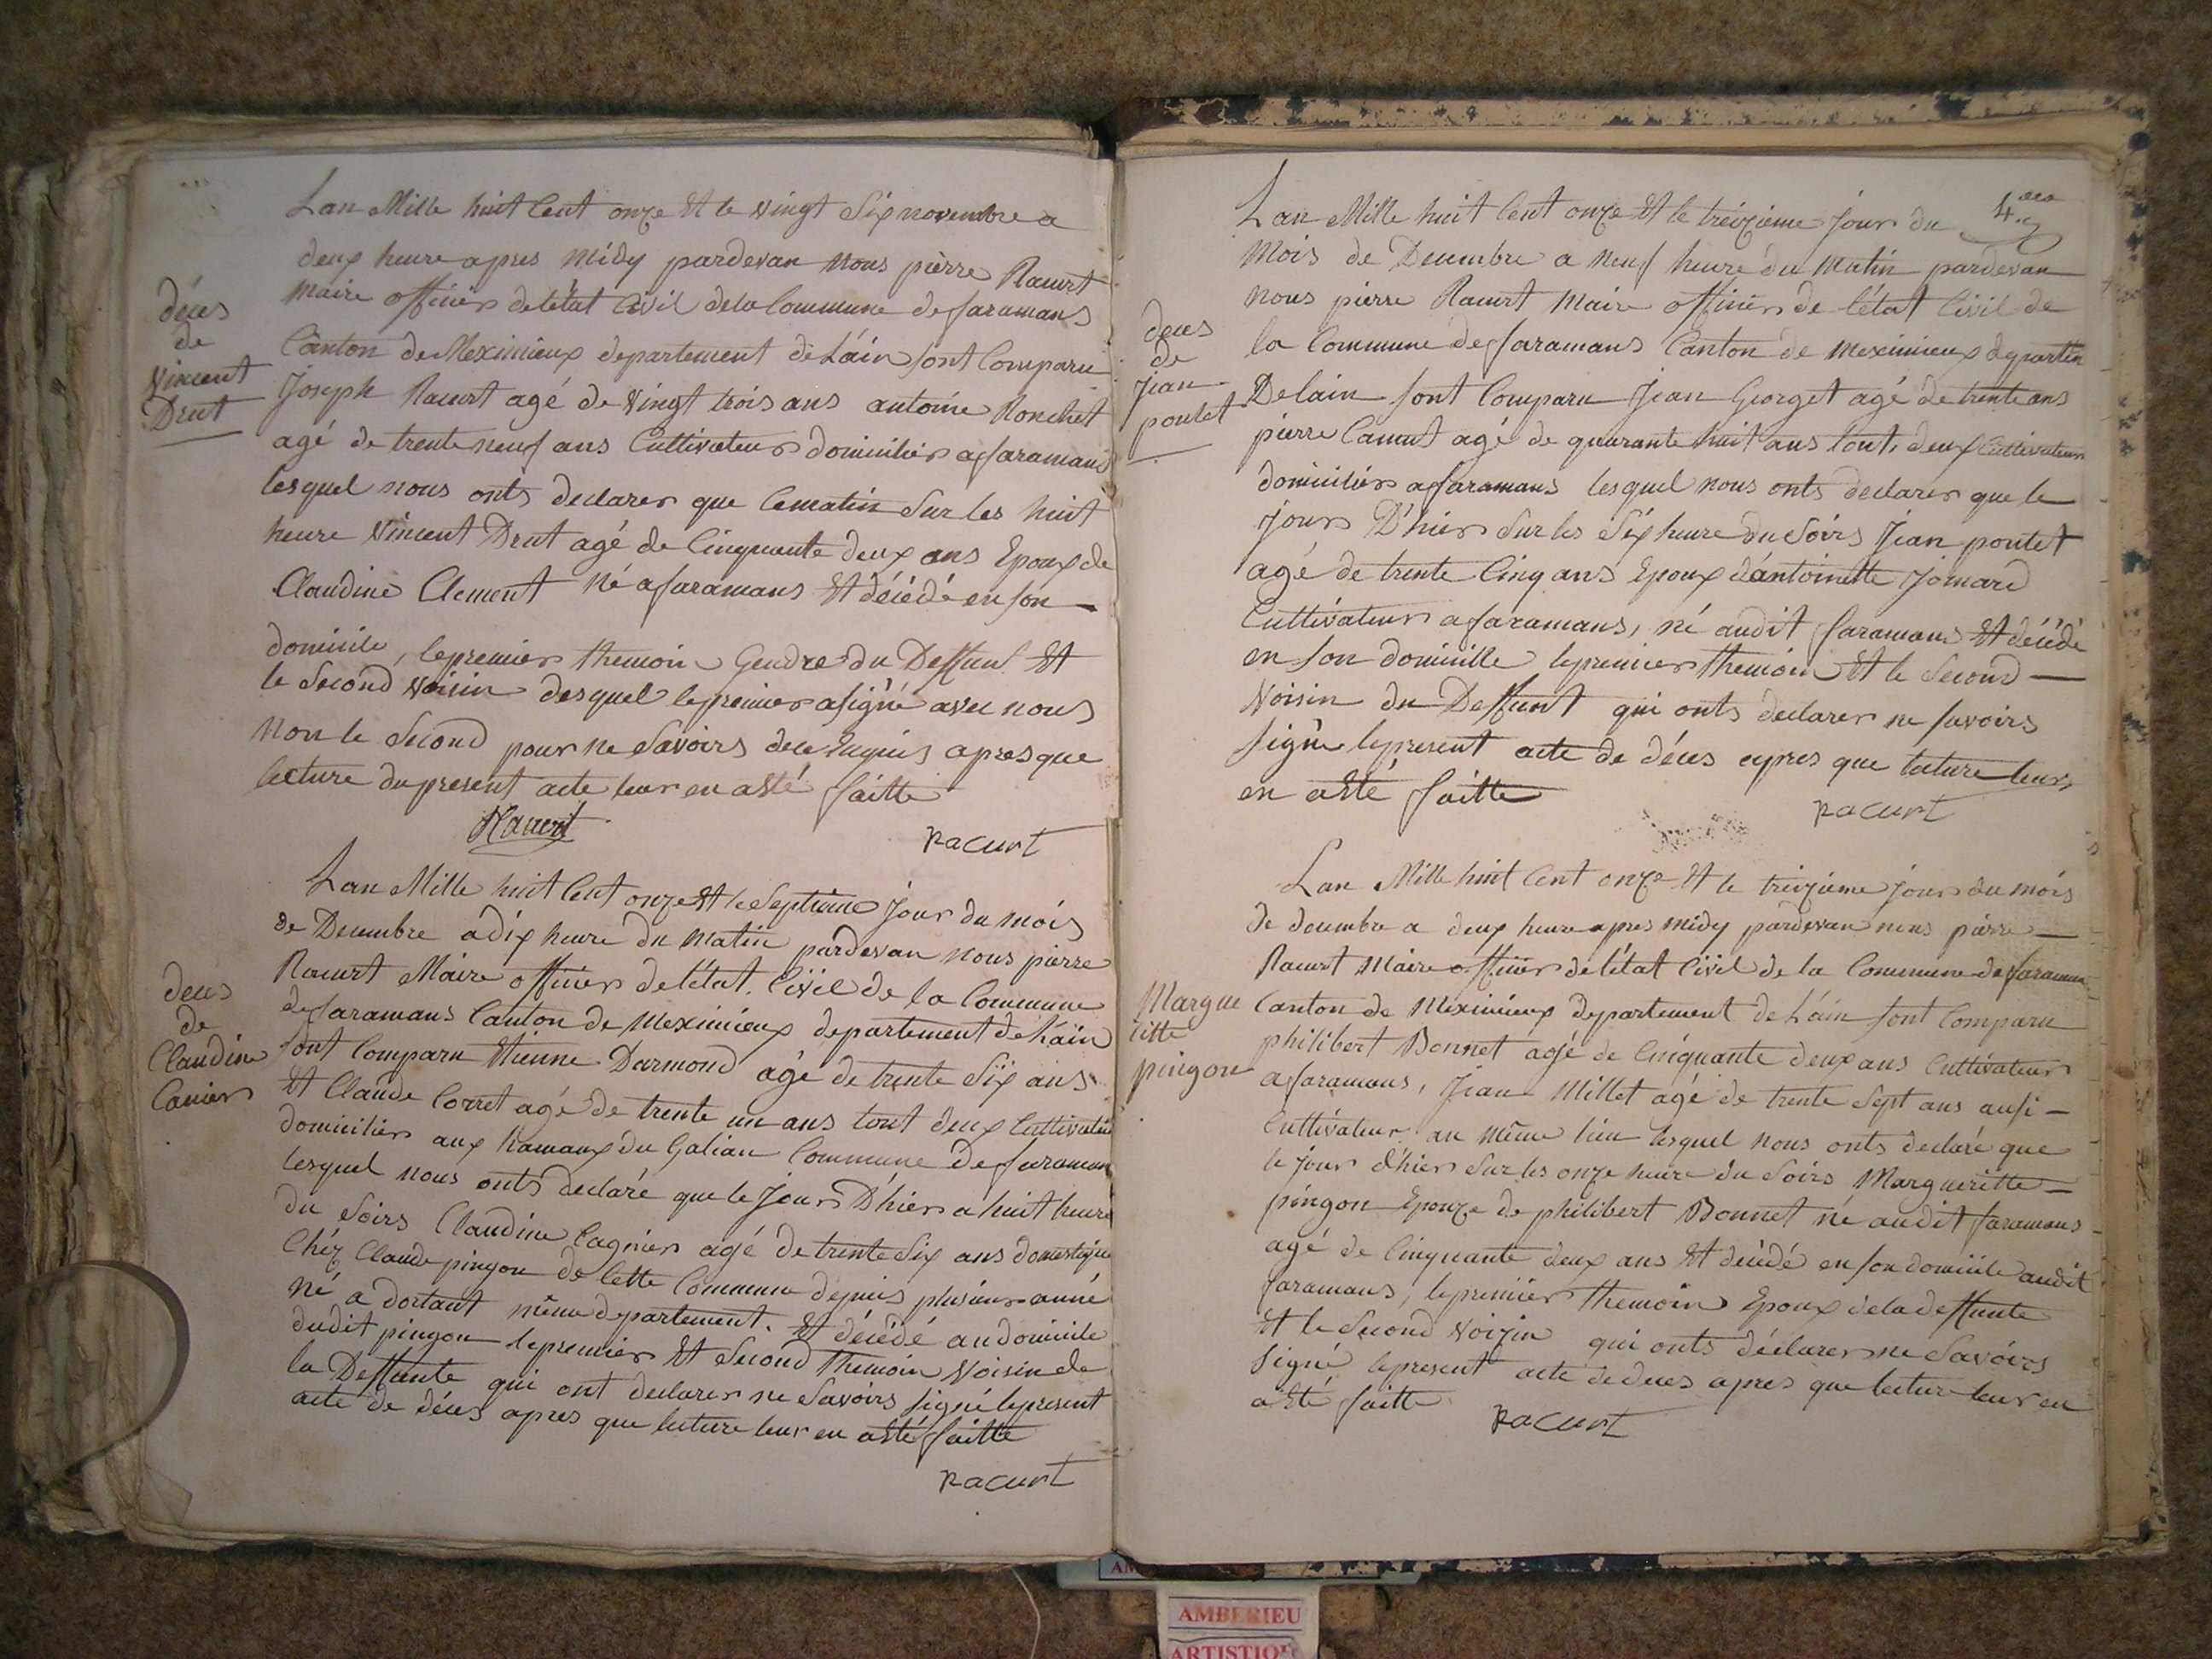 Lan Mille huit Cent onze Et le vingt Six novembre a
deux heure apres Midy pardevan nous pièrre Racurt
Maire officier de létat Civil dela Commune de faramans
Canton de Meximieux departement de Láin sont Comparu
Joseph Racurt agé de Vingt trois ans antoine Ronchet
agé de trente neuf ans Cultivateurs domicilier a faramans
lesquel nous onts declarer que Cematin Sur les huit
heure Vincent Drut agé de Cinquante deux ans Epoux de
Claudine Clement né a faramans Et décédé en son
domicile, lepremier themoin Gendre du Deffunt Et
le Second Voisin desquel lepremier a signé avec nous
Non le Second pour ne Savoirs dece Requis apres que
lecture du present acte leur en a Eté faitte
Racurt
Racurt
déces
de
Vincent
Drut
Lan Mille huit Cent onze Et le Septieme Jour du mois
de Decembre a dix heure du Matin pardevan nous pierre
Racurt Maire officier de létat Civil de la Commune
de faramans Canton de Meximieux departement de Láin
sont Comparu Etienne Darmond agé de trente Six ans
Et Claude Corret agé de trente un ans tout deux Cultivateur
domicilier aux hamaux du Galian Commune de faraman
lesquel nous onts declaré que le Jour D'hier a huit heure
du Soirs Claudine Cagnier agé de trente Six ans domestique
Chéz Claude pingon de Cette Commune depuis plusieur anné
né a dortant même departement. Et décédé au domicile
dudit pingon lepremier Et Second themoin Voisin de
la Deffunte qui ont declarer ne Savoirs signé lepresent
acte de déces apres que lecture leur en a Eté faitte
Racurt
deces
de
Claudine
Canier
4.
Lan Mille huit Cent onze Et le treizieme Jour du
Mois de Decembre a neuf heure du Matin pardevan
nous pierre Racurt Maire officier de létat Civil de
la Commune de faramans Canton de Meximieux departem
Delain sont Comparu Jean Georget agé de trente ans
pierre Camut agé de quarante huit ans tout deux Cultivateur
domicilier a faramans lesquel nous onts declarer que le
jour D'hier Sur les Six heure du Soirs Jean pontet
agé de trente Cinq ans Epoux d'antoinette Joinard
Cultivateur a faramans, né audit faramans Et décédé
en son domicille lepremier themoin Et le Second
Voisin du Deffunt qui onts declarer ne savoirs
signé lepresent acte de déces apres que lecture leurs
en a Eté faitte
Racurt
deces
de
jean
pontet
Lan Mille huit Cent onze Et le treizieme jour du mois
de decembre a deux heure apres midy pardevan nous pierre
Racurt Maire officier de létat Civil de la Commune de faraman
Canton de Meximieux departement de Láin sont Comparu
philibert Bonnet agé de Cinquante deux ans Cultivateur
a faramans, Jean Millet agé de trente Sept ans ausi
Cultivateur au même lieu lesquel nous onts declaré que
le jour d'hier Sur les onze heure du Soirs Margueritte
pingon Epouze de philibert Bonnet né audit faramans
agé de Cinquante deux ans Et décédé en son domicile audit
faramans, lepremier themoin Epoux dela deffunte
Et le Second Voizin qui onts déclarer ne Savoirs
signé lepresent acte de deces apres que lecture leur en
a Eté faitte
Racurt
Margue
ritte
pingon
AMBERIEU
ARTISTIQ